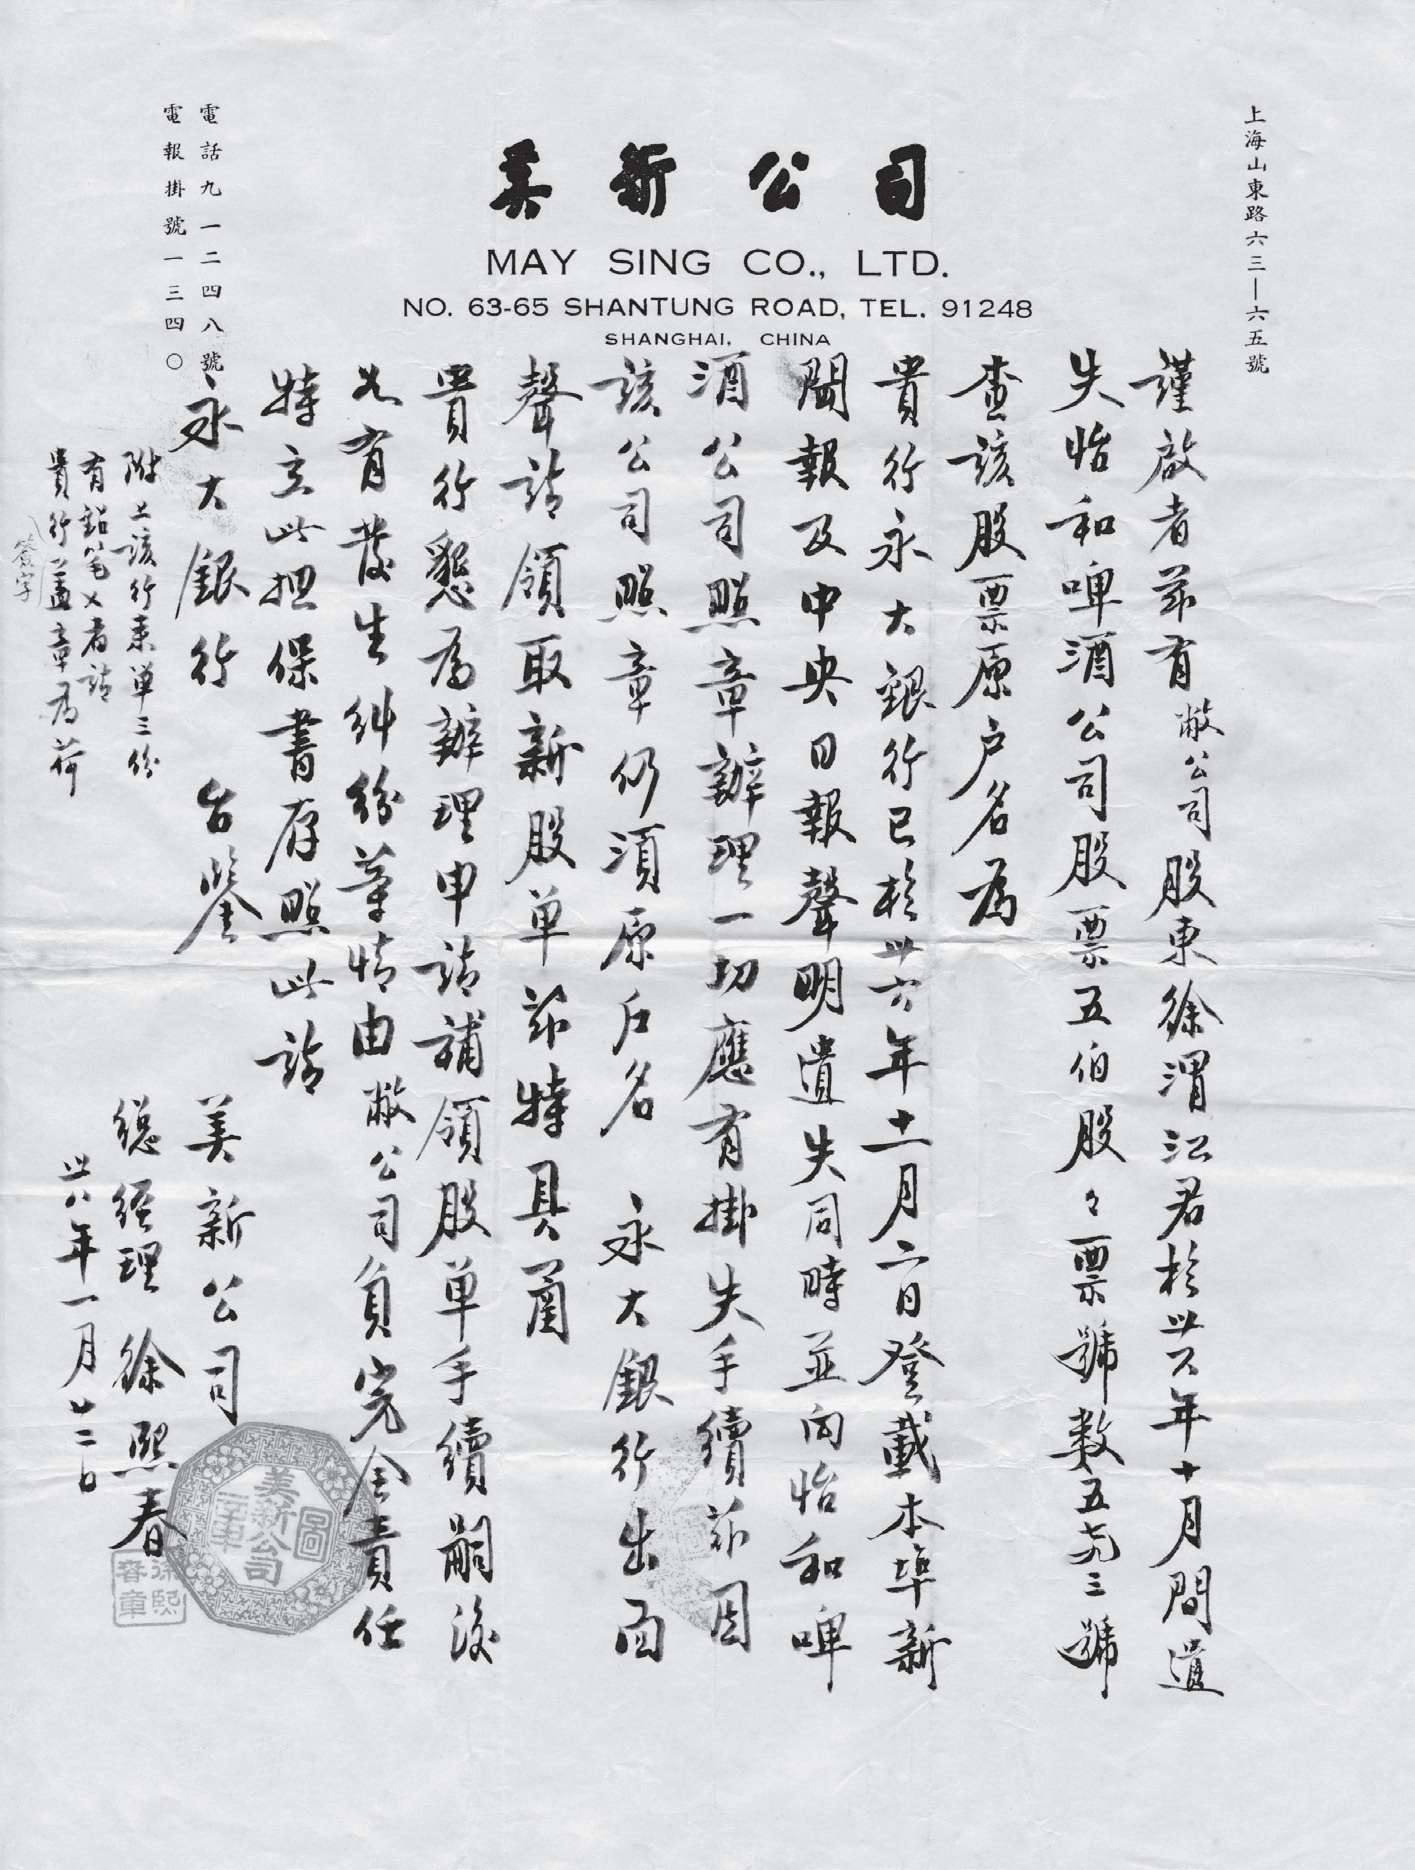 上海山東路六三—六五號
美新公司
MAY SING CO., LTD.
NO. 63-65 SHANTUNG ROAD, TEL. 91248
SHANGHAI, CHINA
電話九一二四八號
電報掛號一三四〇
謹啟者茲有敝公司股東徐渭江君於卅六年十月間遺
失怡和啤酒公司股票五佰股々票號數五三號
查該股票原户名為
貴行永大銀行已於卅六年十一月二日登載本埠新
聞報及中央日報聲明遺失同時並向怡和啤
酒公司照章辦理一切應有掛失手續茲因
該公司照章仍須原户名 永大銀行出面
聲請領取新股单茲特具函
貴行懇為辦理申請補領股单手續嗣後
如有發生糾紛等情由敝公司負完全責任
特立此担保書存照此請
永大銀行 台鑒
美新公司
總經理 徐熙春
卅八年一月廿二日
附上該行表单三份
有鉛笔×者請
貴行蓋章為荷
簽字
美新公司
圖章
徐熙春章